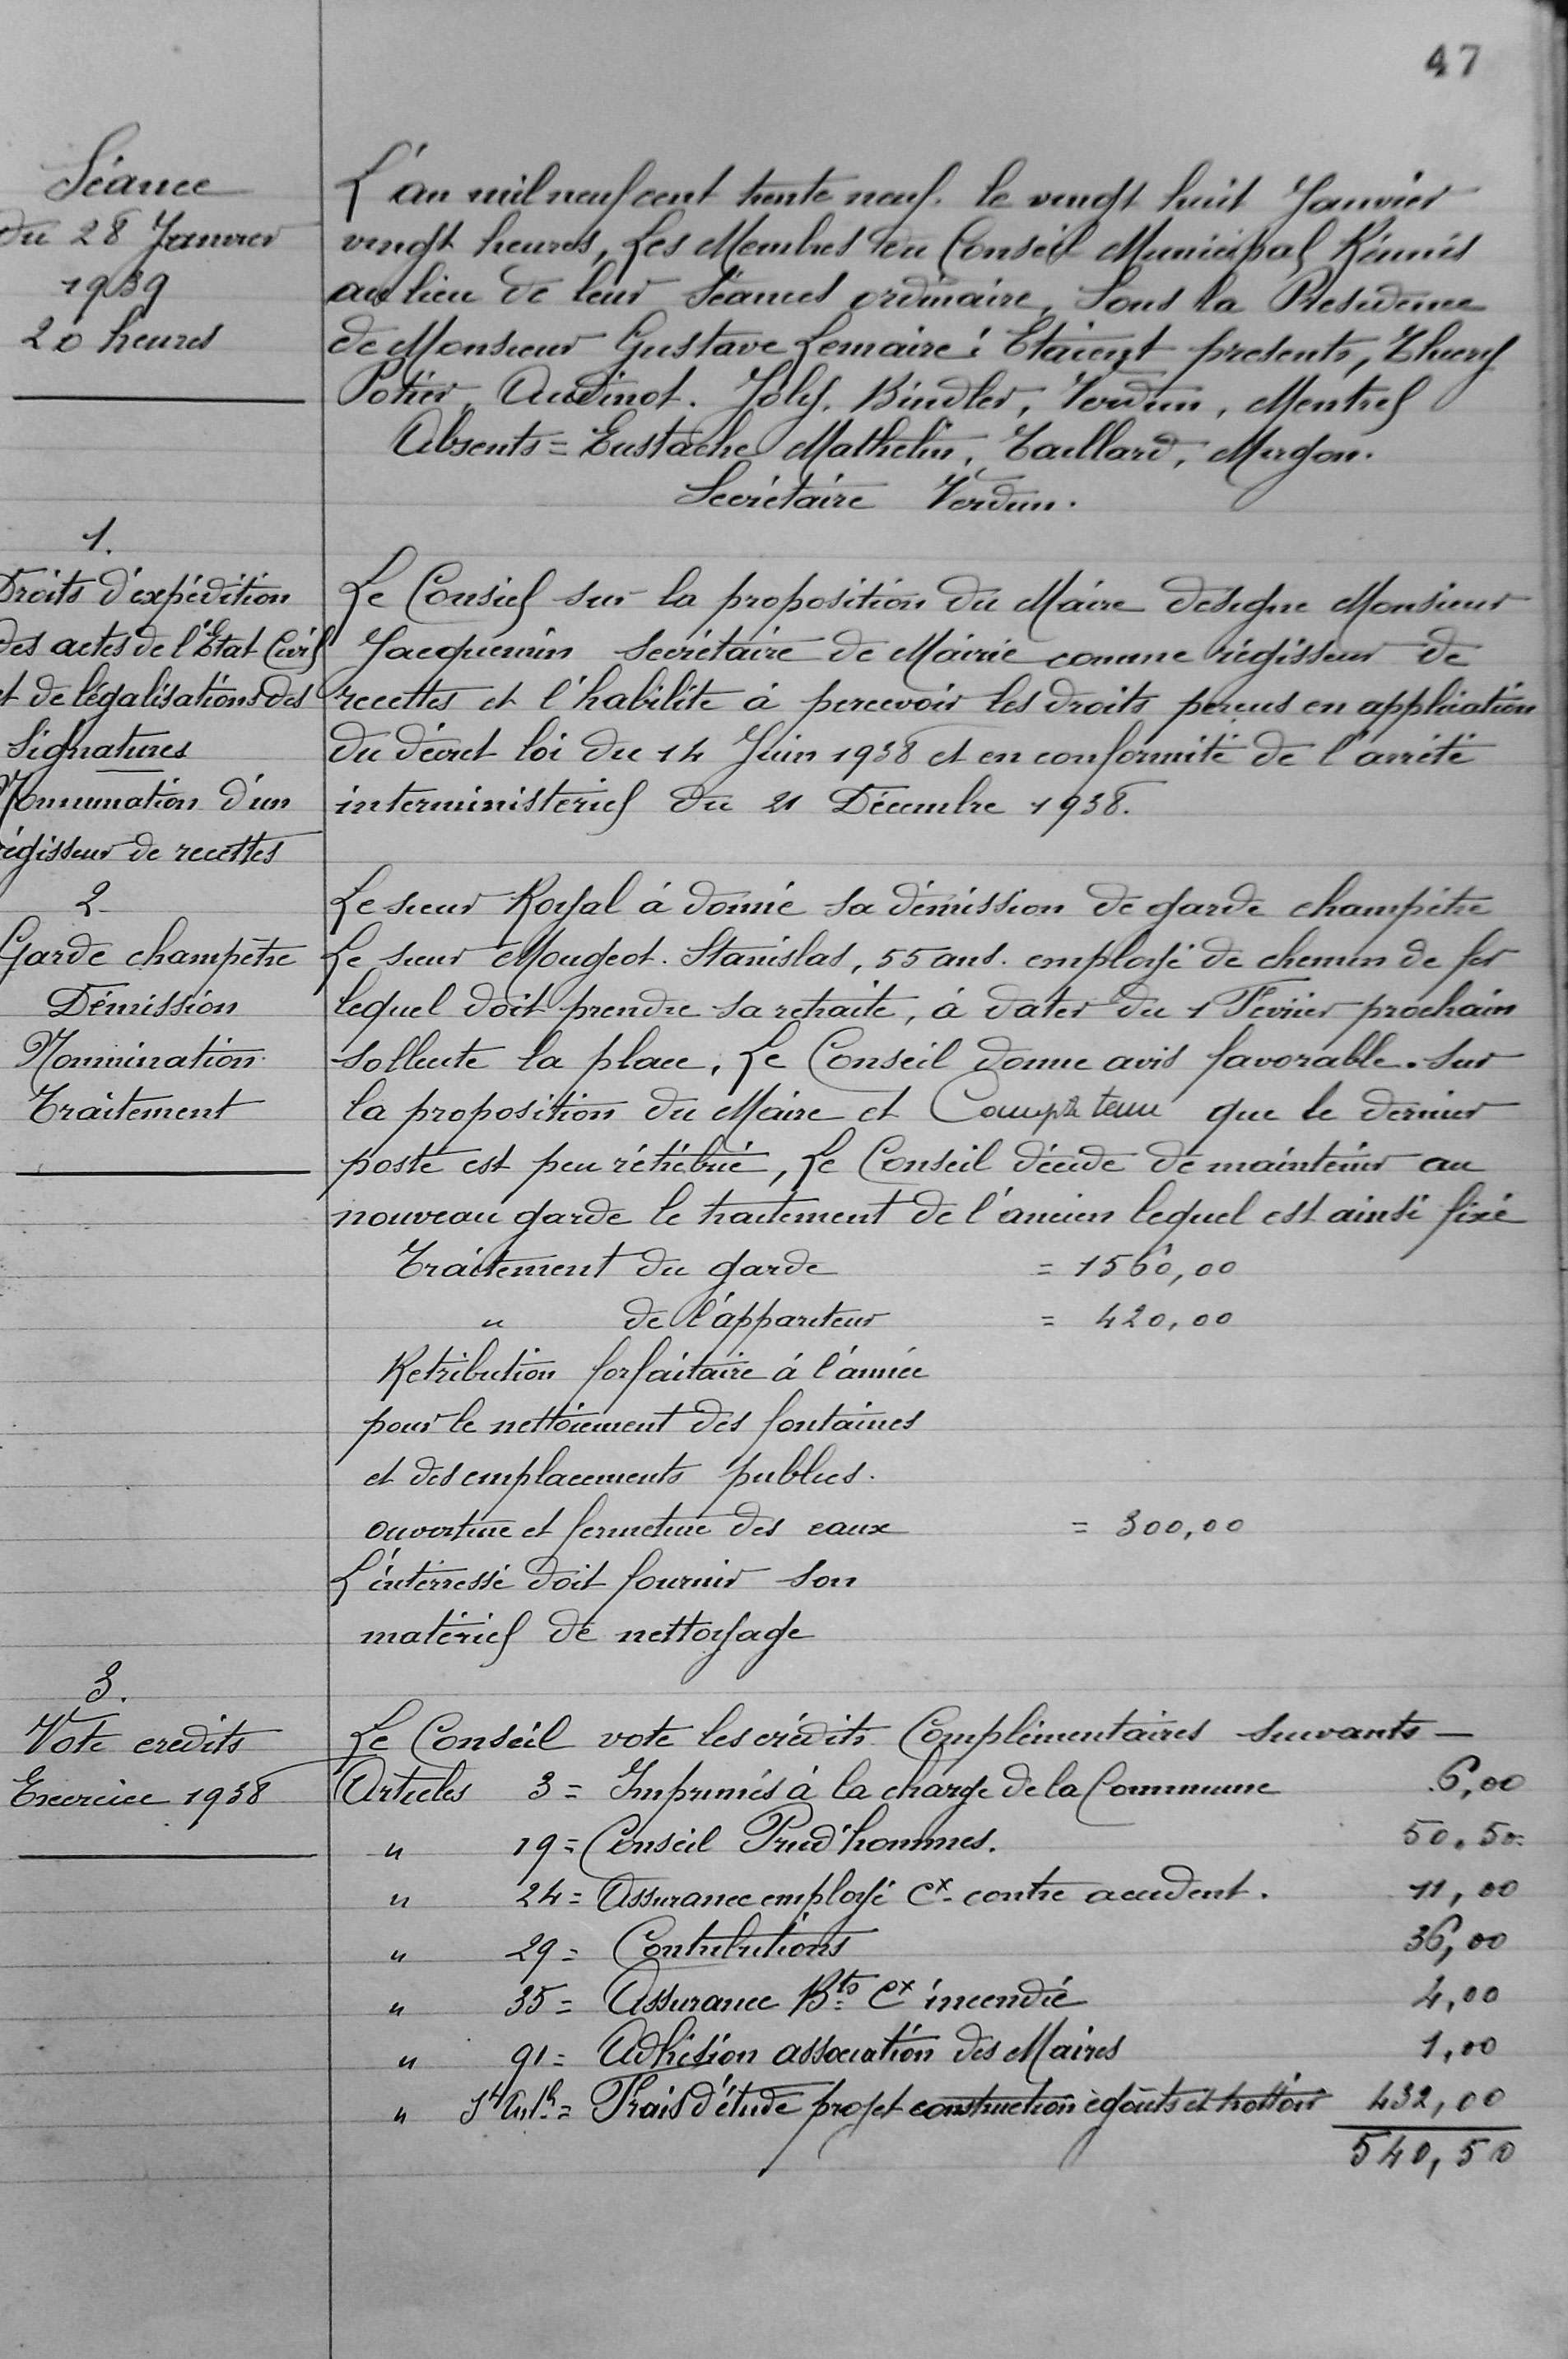 47
Séance
du 28 Janvier
1939
20 heures
L'an mil neuf cent trente neuf. le vingt huit Janvier
vingt heures, Les Membres du Conseil Municipal Réunis
au lieu de leur Séances ordinaire, Sous la Presidence
de Monsieur Gustave Lemaire : Etaient presents, Thiery
Potier, Audinot. Joly, Bindler, Verdun, Mentrel
Absents = Eustache Mathelin, Taillard, Mugon.
Secrétaire Verdun.
1.
Droits d'expédition
des actes de l'Etat Civil
et de légalisations des
Signatures
Nommination d'un
régisseur de recettes
Le Consiel sur la proposition du Maire designe Monsieur
Jacquemin secrétaire de Mairie comme régisseur de
recettes et l'habilite à percevoir les droits perçus en application
du décret loi du 14 Juin 1938 et en conformité de l'arrêté
interministériel du 21 Décembre 1938.
2
Garde champêtre
Démission
Nommination
Traitement
Le sieur Royal à donné sa démission de garde champêtre
Le sieur Mougeot. Stanislas, 55 ans. employé de chemin de fer
lequel doit prendre sa retraite, à dater du 1 Février prochain
sollecite la place. Le Conseil donne avis favorable. Sur
la proposition du Maire et Compte tenu que le dernier
poste est peu rétribué, Le Conseil décide de maintenir au
nouveau garde le traitement de l'ancien lequel est ainsi fixé
Traitement du garde = 1560,00
" de l'appariteur = 420,00
Retribution forfaitaire à l'année
pour le nettoiement des fontaines
et des emplacements publics.
ouverture et fermeture des eaux = 300,00
L'intéressé doit fournir son
matériel de nettoyage
3.
Vote credits
Exercice 1938
Le Conseil vote les crédits Complémentaires suivants —
Articles 3 = Imprimés à la charge de la Commune 6,00
" 19 = Conseil Prud'hommes. 50.50
" 24 = Assurance employé Cx contre accident. 11,00
" 29 = Contributions 36,00
" 35 = Assurance Bts Cx incendie 4,00
" 91 = Adhésion association des Maires 1,00
" = Frais d'étude projet construction égouts et trottoir 432,00
540,50